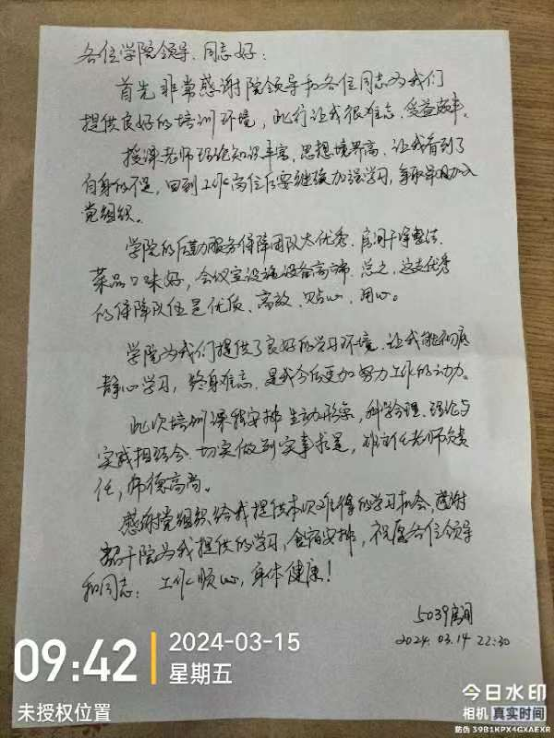 各位学院领导、同志好：
首先非常感谢院领导和各位同志为我们
提供良好的培训环境，此行让我很难忘、受益匪浅。
授课老师理论知识丰富，思想境界高，让我看到了
自身的不足，回到工作岗位后要继续加强学习，争取早日加入
党组织。
学院的后勤服务保障团队太优秀，房间干净整洁、
菜品口味好，会议室设施设备高端，总之，这支优秀
的保障队伍是优质、高效、贴心、用心。
学院为我们提供了良好的学习环境，让我能彻底
静心学习，终身难忘，是我今后更加努力工作的动力。
此次培训课程安排生动形象，科学合理，理论与
实践相结合，切实做到实事求是，班主任老师负责
任，师德高尚。
感谢党组织给我提供本次难得的学习机会，感谢
干院为我提供的学习，食宿安排，祝愿各位领导
和同志：工作顺心，身体健康！
5039房间
2024.03.14 22:30
09:42
2024-03-15
星期五
未授权位置
今日水印
相机 真实时间
防伪 39B1KPX4GXAEXR